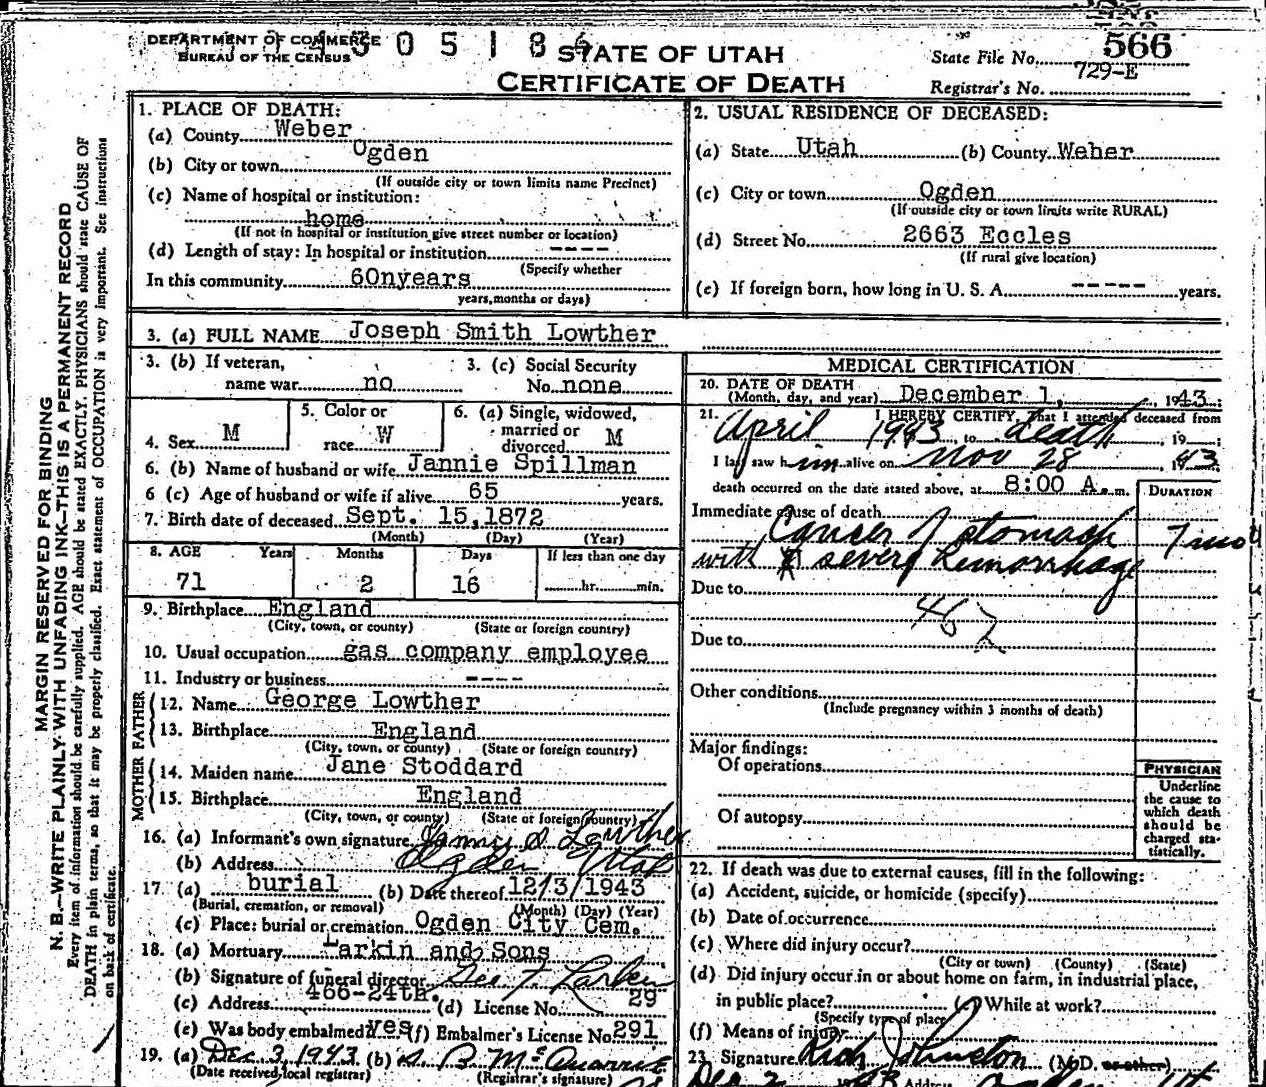 DEPARTMENT OF COMMERCE
BUREAU OF THE CENSUS
STATE OF UTAH
CERTIFICATE OF DEATH
State File No. 566
729-E
Registrar's No.
MARGIN RESERVED FOR BINDING
N. B.—WRITE PLAINLY WITH UNFADING INK—THIS IS A PERMANENT RECORD
Every item of information should be carefully supplied. AGE should be stated EXACTLY. PHYSICIANS should state CAUSE OF
DEATH in plain terms, so that it may be properly classified. Exact statement of OCCUPATION is very important. See instructions
on back of certificate.
1. PLACE OF DEATH:
(a) County Weber
(b) City or town Ogden
(If outside city or town limits name Precinct)
(c) Name of hospital or institution:
home
(If not in hospital or institution give street number or location)
(d) Length of stay: In hospital or institution ----
(Specify whether
In this community 60nyears
years, months or days)
2. USUAL RESIDENCE OF DECEASED:
(a) State Utah (b) County Weber
(c) City or town Ogden
(If outside city or town limits write RURAL)
(d) Street No. 2663 Eccles
(If rural give location)
(e) If foreign born, how long in U. S. A. ----- years.
3. (a) FULL NAME Joseph Smith Lowther
3. (b) If veteran, name war no
3. (c) Social Security No. none
4. Sex M
5. Color or race W
6. (a) Single, widowed, married or divorced M
6. (b) Name of husband or wife Jannie Spillman
6 (c) Age of husband or wife if alive 65 years.
7. Birth date of deceased Sept. 15,1872
(Month) (Day) (Year)
8. AGE Years Months Days If less than one day
71 2 16 hr. min.
9. Birthplace England
(City, town, or county) (State or foreign country)
10. Usual occupation gas company employee
11. Industry or business ----
FATHER
12. Name George Lowther
13. Birthplace England
(City, town, or county) (State or foreign country)
MOTHER
14. Maiden name Jane Stoddard
15. Birthplace England
(City, town, or county) (State or foreign country)
16. (a) Informant's own signature Lowther
(b) Address Ogden Utah
17. (a) burial (b) Date thereof 12/3/1943
(Burial, cremation, or removal) (Month) (Day) (Year)
(c) Place: burial or cremation Ogden City Cem.
18. (a) Mortuary Larkin and Sons
(b) Signature of funeral director Geo F Larkin
(c) Address 466-24th. (d) License No. 29
(e) Was body embalmed? yes (f) Embalmer's License No. 291
19. (a) Dec 3 1943 (b)
(Date received local registrar) (Registrar's signature)
MEDICAL CERTIFICATION
20. DATE OF DEATH
(Month, day, and year) December 1, 1943
21. I HEREBY CERTIFY, That I attended deceased from
April 1943 to death, 19
I last saw him alive on Nov 28 1943
death occurred on the date stated above, at 8:00 A. m.
DURATION
Immediate cause of death
Cancer of stomach 7 mo
with severe hemorrhage
Due to
46
Due to
Other conditions
(Include pregnancy within 3 months of death)
Major findings:
Of operations
Of autopsy
PHYSICIAN
Underline
the cause to
which death
should be
charged sta-
tistically.
22. If death was due to external causes, fill in the following:
(a) Accident, suicide, or homicide (specify)
(b) Date of occurrence
(c) Where did injury occur?
(City or town) (County) (State)
(d) Did injury occur in or about home on farm, in industrial place,
in public place? (e) While at work?
(Specify type of place
(f) Means of injury
23. Signature Rich Johnston (M. D. or other)